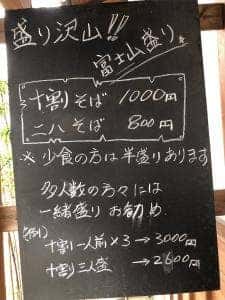 盛り沢山!!
富士山盛り
十割そば 1000円
二八そば 800円
※ 少食の方は半盛りあります
多人数の方々には
一緒盛り お勧め
(例)
十割一人前×3→3000円
十割三人盛→2600円